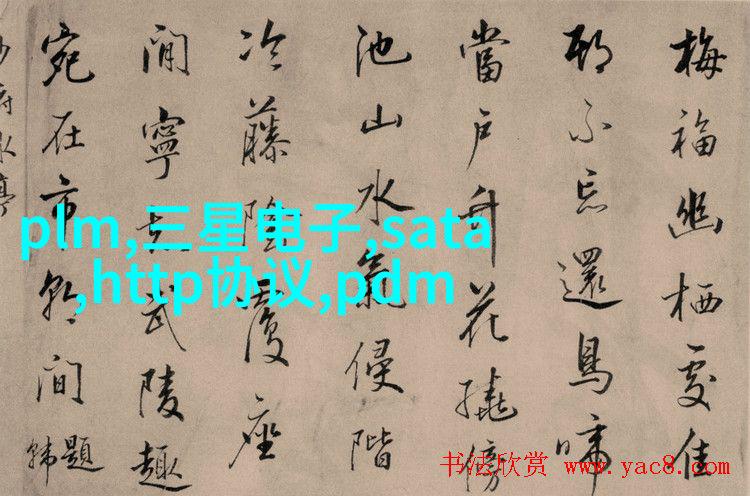 梅福幽栖處佳
期不忘還鳥啼
當戶竹花繞傍
池山水氣侵階
冷藤陰覆座
間寧知武陵趣
宛在市朝間
題韓
少府水亭
plm,三星电子,sata
,http协议,pdm
书法欣赏 www.yac8.com